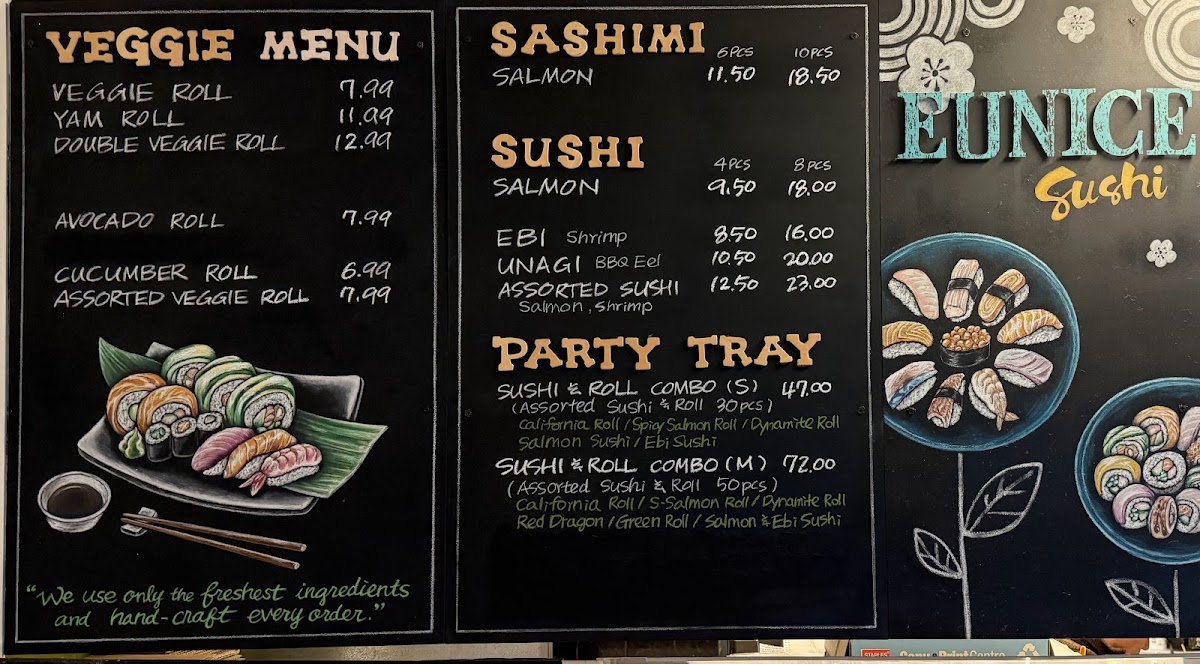 VEGGIE MENU
VEGGIE ROLL 7.99
YAM ROLL 11.99
DOUBLE VEGGIE ROLL 12.99
AVOCADO ROLL 7.99
CUCUMBER ROLL 6.99
ASSORTED VEGGIE ROLL 7.99
"We use only the freshest ingredients
and hand-craft every order."
SASHIMI 6PCS 10PCS
SALMON 11.50 18.50
SUSHI 4PCS 8PCS
SALMON 9.50 18.00
EBI Shrimp 8.50 16.00
UNAGI BBQ Eel 10.50 20.00
ASSORTED SUSHI 12.50 23.00
Salmon, Shrimp
PARTY TRAY
SUSHI & ROLL COMBO (S) 47.00
(Assorted Sushi & Roll 30pcs)
California Roll / Spicy Salmon Roll / Dynamite Roll
Salmon Sushi / Ebi Sushi
SUSHI & ROLL COMBO (M) 72.00
(Assorted Sushi & Roll 50pcs)
California Roll / S-Salmon Roll / Dynamite Roll
Red Dragon / Green Roll / Salmon & Ebi Sushi
EUNICE
Sushi
STAPLES Copy & Print Centre